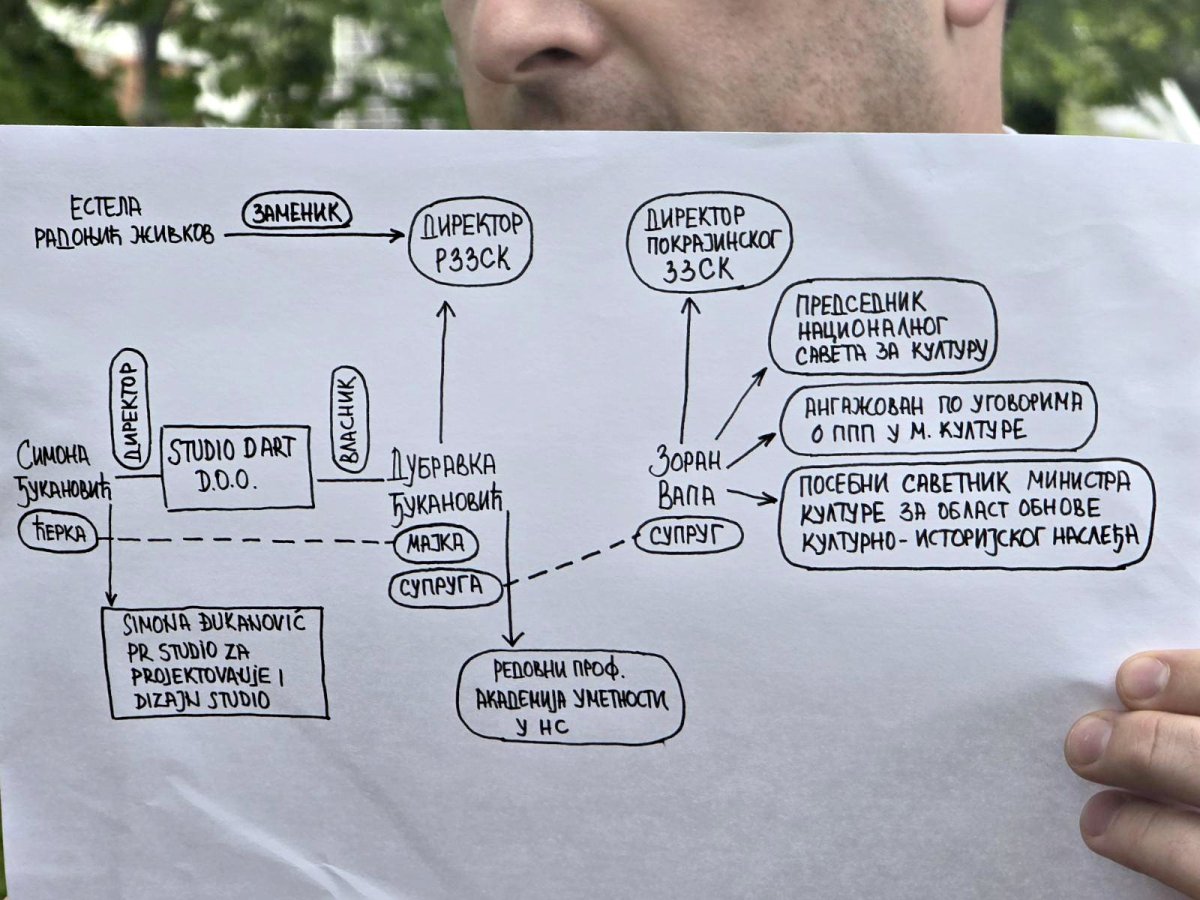 ЕСТЕЛА
РАДОЊИЋ ЖИВКОВ
ЗАМЕНИК
ДИРЕКТОР
РЗЗСК
ДИРЕКТОР
ПОКРАЈИНСКОГ
ЗЗСК
ПРЕДСЕДНИК
НАЦИОНАЛНОГ
САВЕТА ЗА КУЛТУРУ
АНГАЖОВАН ПО УГОВОРИМА
О ППП У М. КУЛТУРЕ
ПОСЕБНИ САВЕТНИК МИНИСТРА
КУЛТУРЕ ЗА ОБЛАСТ ОБНОВЕ
КУЛТУРНО-ИСТОРИЈСКОГ НАСЛЕЂА
СИМОНА
ЂУКАНОВИЋ
ЋЕРКА
ДИРЕКТОР
STUDIO D'ART
D.O.O.
ВЛАСНИК
ДУБРАВКА
ЂУКАНОВИЋ
МАЈКА
СУПРУГА
ЗОРАН
ВАПА
СУПРУГ
SIMONA ĐUKANOVIĆ
PR STUDIO ZA
PROJEKTOVANJE I
DIZAJN STUDIO
РЕДОВНИ ПРОФ.
АКАДЕМИЈА УМЕТНОСТИ
У НС